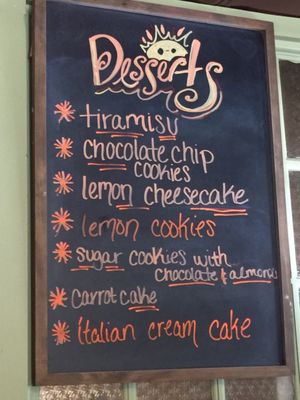 Desserts
* tiramisu
* chocolate chip
cookies
* lemon cheesecake
* lemon cookies
* sugar cookies with
chocolate & almonds
* carrot cake
* italian cream cake